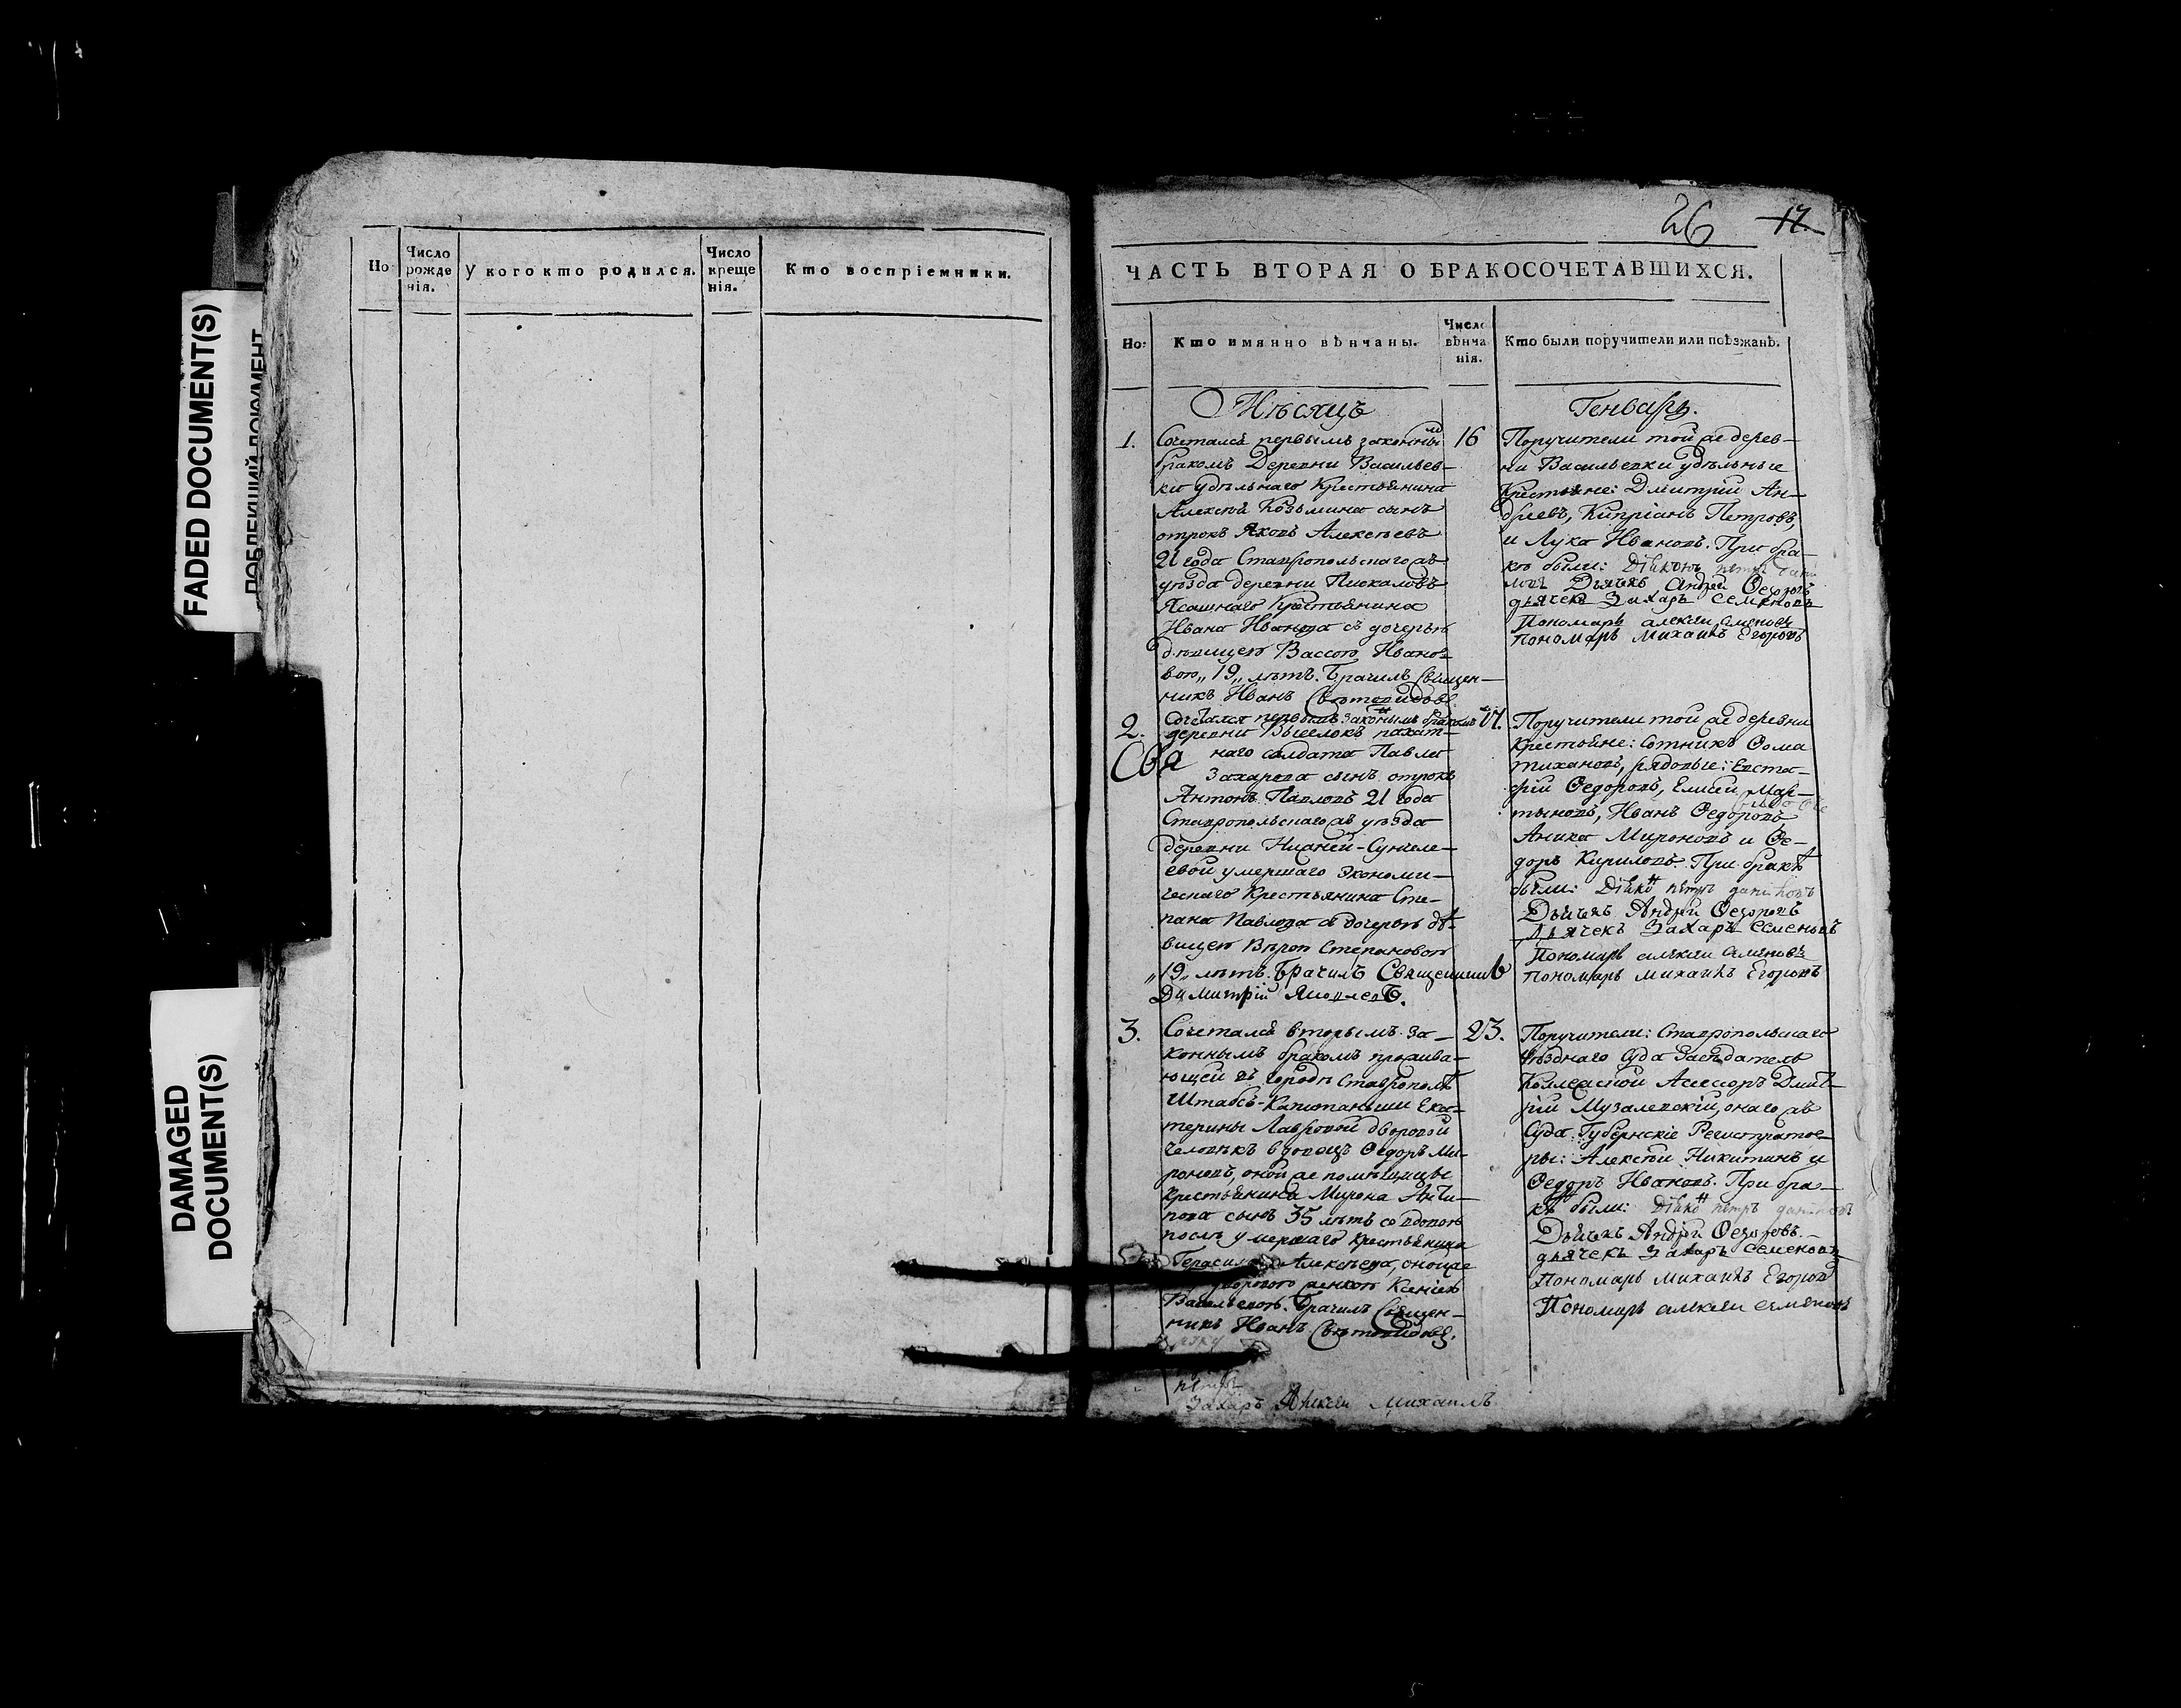 FADED DOCUMENT(S)
DAMAGED
DOCUMENT(S)
Но
Число
рожде
нія.
У кого кто родился.
Число
креще
нія.
Кто воспріемники.
26 17.
ЧАСТЬ ВТОРАЯ О БРАКОСОЧЕТАВШИХСЯ.
Но:
Кто имянно вѣнчаны.
Число
вѣнча
нія.
Кто были поручители или поѣзжанѣ.
Мѣсяцъ
Генварь.
1.
Сочетался первымъ законнымъ
бракомъ Деревни Васильев-
ки удѣльнаго Крестьянина
Алексѣя Козьмина сынъ
отрокъ Яковъ Алексѣевъ
21 года Ставропольскаго жъ
уѣзда деревни Пискаловъ
Ясашнаго Крестьянина
Ивана Иванова съ дочерью
дѣвицею Вассою Ивано-
вою „19„ лѣтъ. Брачилъ Священ-
никъ Иванъ Свѣтовидовъ.
16
Поручители той же дерев-
ни Васильевки удѣльные
Крестьяне: Дмитрій Ан-
дреевъ, Кипріанъ Петровъ,
и Лука Ивановъ. При бра-
кѣ были: Діаконъ петръ
Дьячекъ Андрей Ѳедоровъ
дьячекъ Захаръ Семеновъ
Пономарь алексѣй семеновъ
пономарь михаилъ Егоровъ
2.
Сочетался первымъ законнымъ бракомъ
деревни Выселокъ пахат-
наго солдата Павла
Захарова сынъ отрокъ
Антонъ Павловъ 21 года
Ставропольскаго жъ уѣзда
деревни Нижней-Сунчеле-
евой умершаго Экономи-
ческаго Крестьянина Сте-
пана Павлова съ дочерью дѣ-
вицею Вѣрою Степановою
„19„ лѣтъ. Брачилъ Священникъ
Димитрій Яковлевъ.
17.
Поручители той же деревни
Крестьяне: Сотникъ Ѳома
тихановъ, рядовые: Евста-
фій Ѳедоровъ, Елисей Мар-
тыновъ, Иванъ Ѳедоровъ
Аника Мироновъ и Ѳе-
доръ Кириловъ. При бракѣ
были: Діаконъ петръ даниловъ
Дьячекъ Андрей Ѳедоровъ
Дьячекъ Захаръ Семеновъ
Пономарь алексѣй семеновъ
пономарь михаилъ Егоровъ
3.
Сочетался вторымъ за-
коннымъ бракомъ прожива-
ющей въ городѣ Ставрополѣ
Штабсъ-Капитанши Ека-
терины Лавровой дворовой
человѣкъ вдовецъ Ѳедоръ Ми-
роновъ, оной же помѣщицы
крестьянина Мирона Анти-
пова сынъ 35 лѣтъ со вдовою
послѣ умершаго крестьянина
Герасима Алексѣева, оной же
дворовою женкою Ксеніею
Васильевою. Брачилъ Священ-
никъ Иванъ Свѣтовидовъ.
23.
Поручители: Ставропольскаго
Уѣзднаго Суда Засѣдатель
Коллежской Асессоръ Дмит-
рій Музалевскій, онаго жъ
Суда Губернскіе Регистрато-
ры: Алексѣй Никитинъ и
Ѳедоръ Ивановъ. При бра-
кѣ были: Діаконъ петръ даниловъ
Дьячекъ Андрей Ѳедоровъ.
дьячекъ Захаръ Семеновъ
Пономарь михаилъ Егоровъ
Пономарь алексѣй семеновъ
петръ
Захаръ Алексѣй Михаилъ